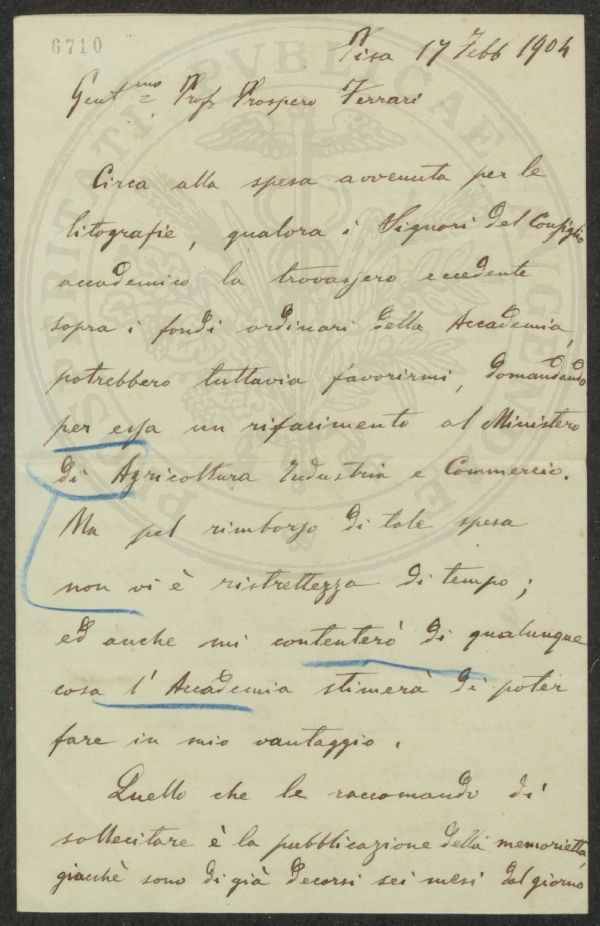 6710
Pisa 17 Febb 1904
Gent.mo Prof. Prospero Ferrari
Circa alla spesa avvenuta per le
litografie, qualora i Signori del Consiglio
accademico la trovassero eccedente
sopra i fondi ordinari della Accademia,
potrebbero tuttavia favorirmi, domandando
per essa un rifacimento al Ministero
di Agricoltura Industria e Commercio.
Ma pel rimborso di tale spesa
non vi è ristrettezza di tempo;
ed anche mi contenterò di qualunque
cosa l'Accademia stimerà di poter
fare in mio vantaggio.
Quello che le raccomando di
sollecitare è la pubblicazione della memorietta,
giacchè sono di già decorsi sei mesi dal giorno